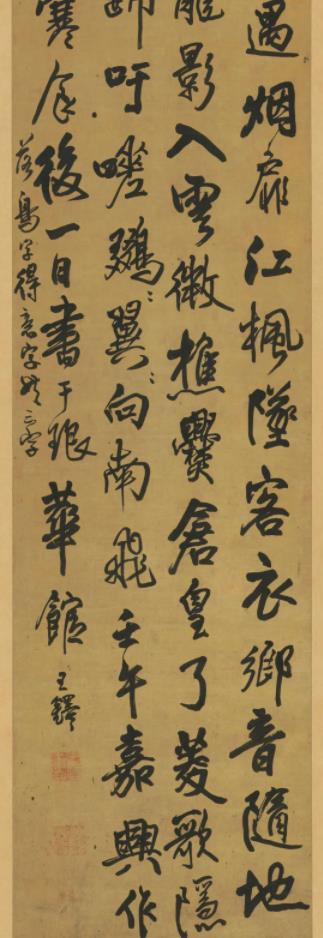 遇烟扉江楓墜客衣鄉音隨地
影入雲微樵爨倉皇了菱歌隱
歸吁嗟鷄翼〻向南飛壬午嘉興作
寒食後一日書于琅華館 王鐸
落鳥字得意字外三字